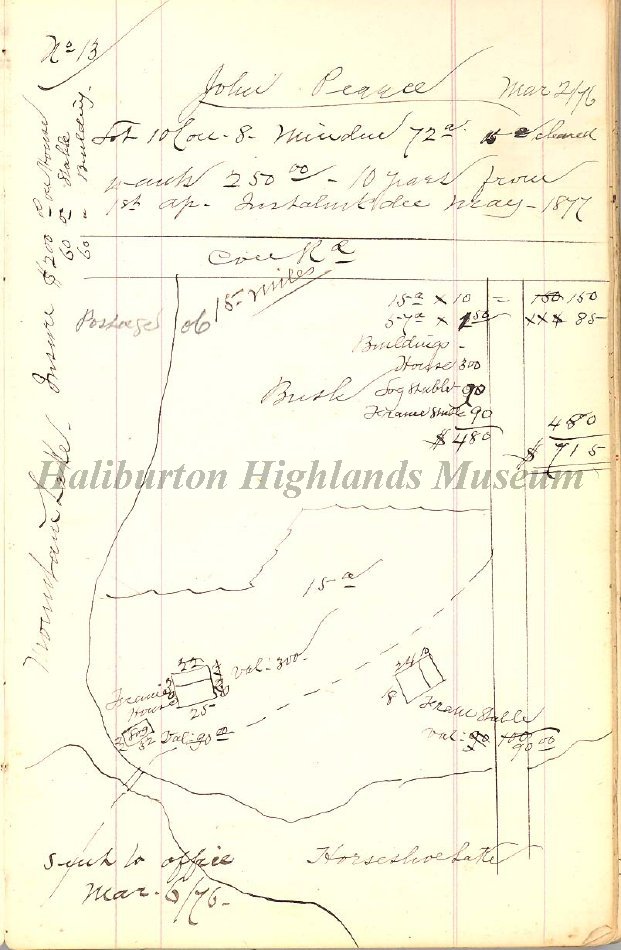 No 13
John Pearce Mar 2/76
Lot 10 Con. 8 - Minden 72 a. 15 a cleared
wants 250 00 - 10 years from
1st ap - Instalmt due May - 1877
Insure $200 on House
60 " Stable
60 " Building -
Con Rd
15 miles
15 a x 10 = 150 150
57 a x 1 50 xxx 85-
Buildings -
House 300
Bush Log Stable 90
Frame Stable 90
$480 480
$715
Haliburton Highlands Museum
Mountain Lake -
15 a
22
Val: 300-
Frame
House
25
Log
Val: 90 00
24
18
Frame Stable
Val: 90 100
90 00
Sent to office Horseshoe Lake
Mar - 6/76 -